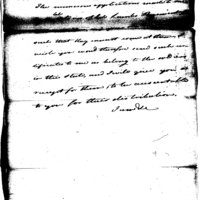 The numerous applications made to me
such that they cannot come at them. I
wish you would therefore send such cer-
tificates to me as belong to the soldiers
in this State, and I will give you a
receipt for them, & to be accountable
to you for their distribution.